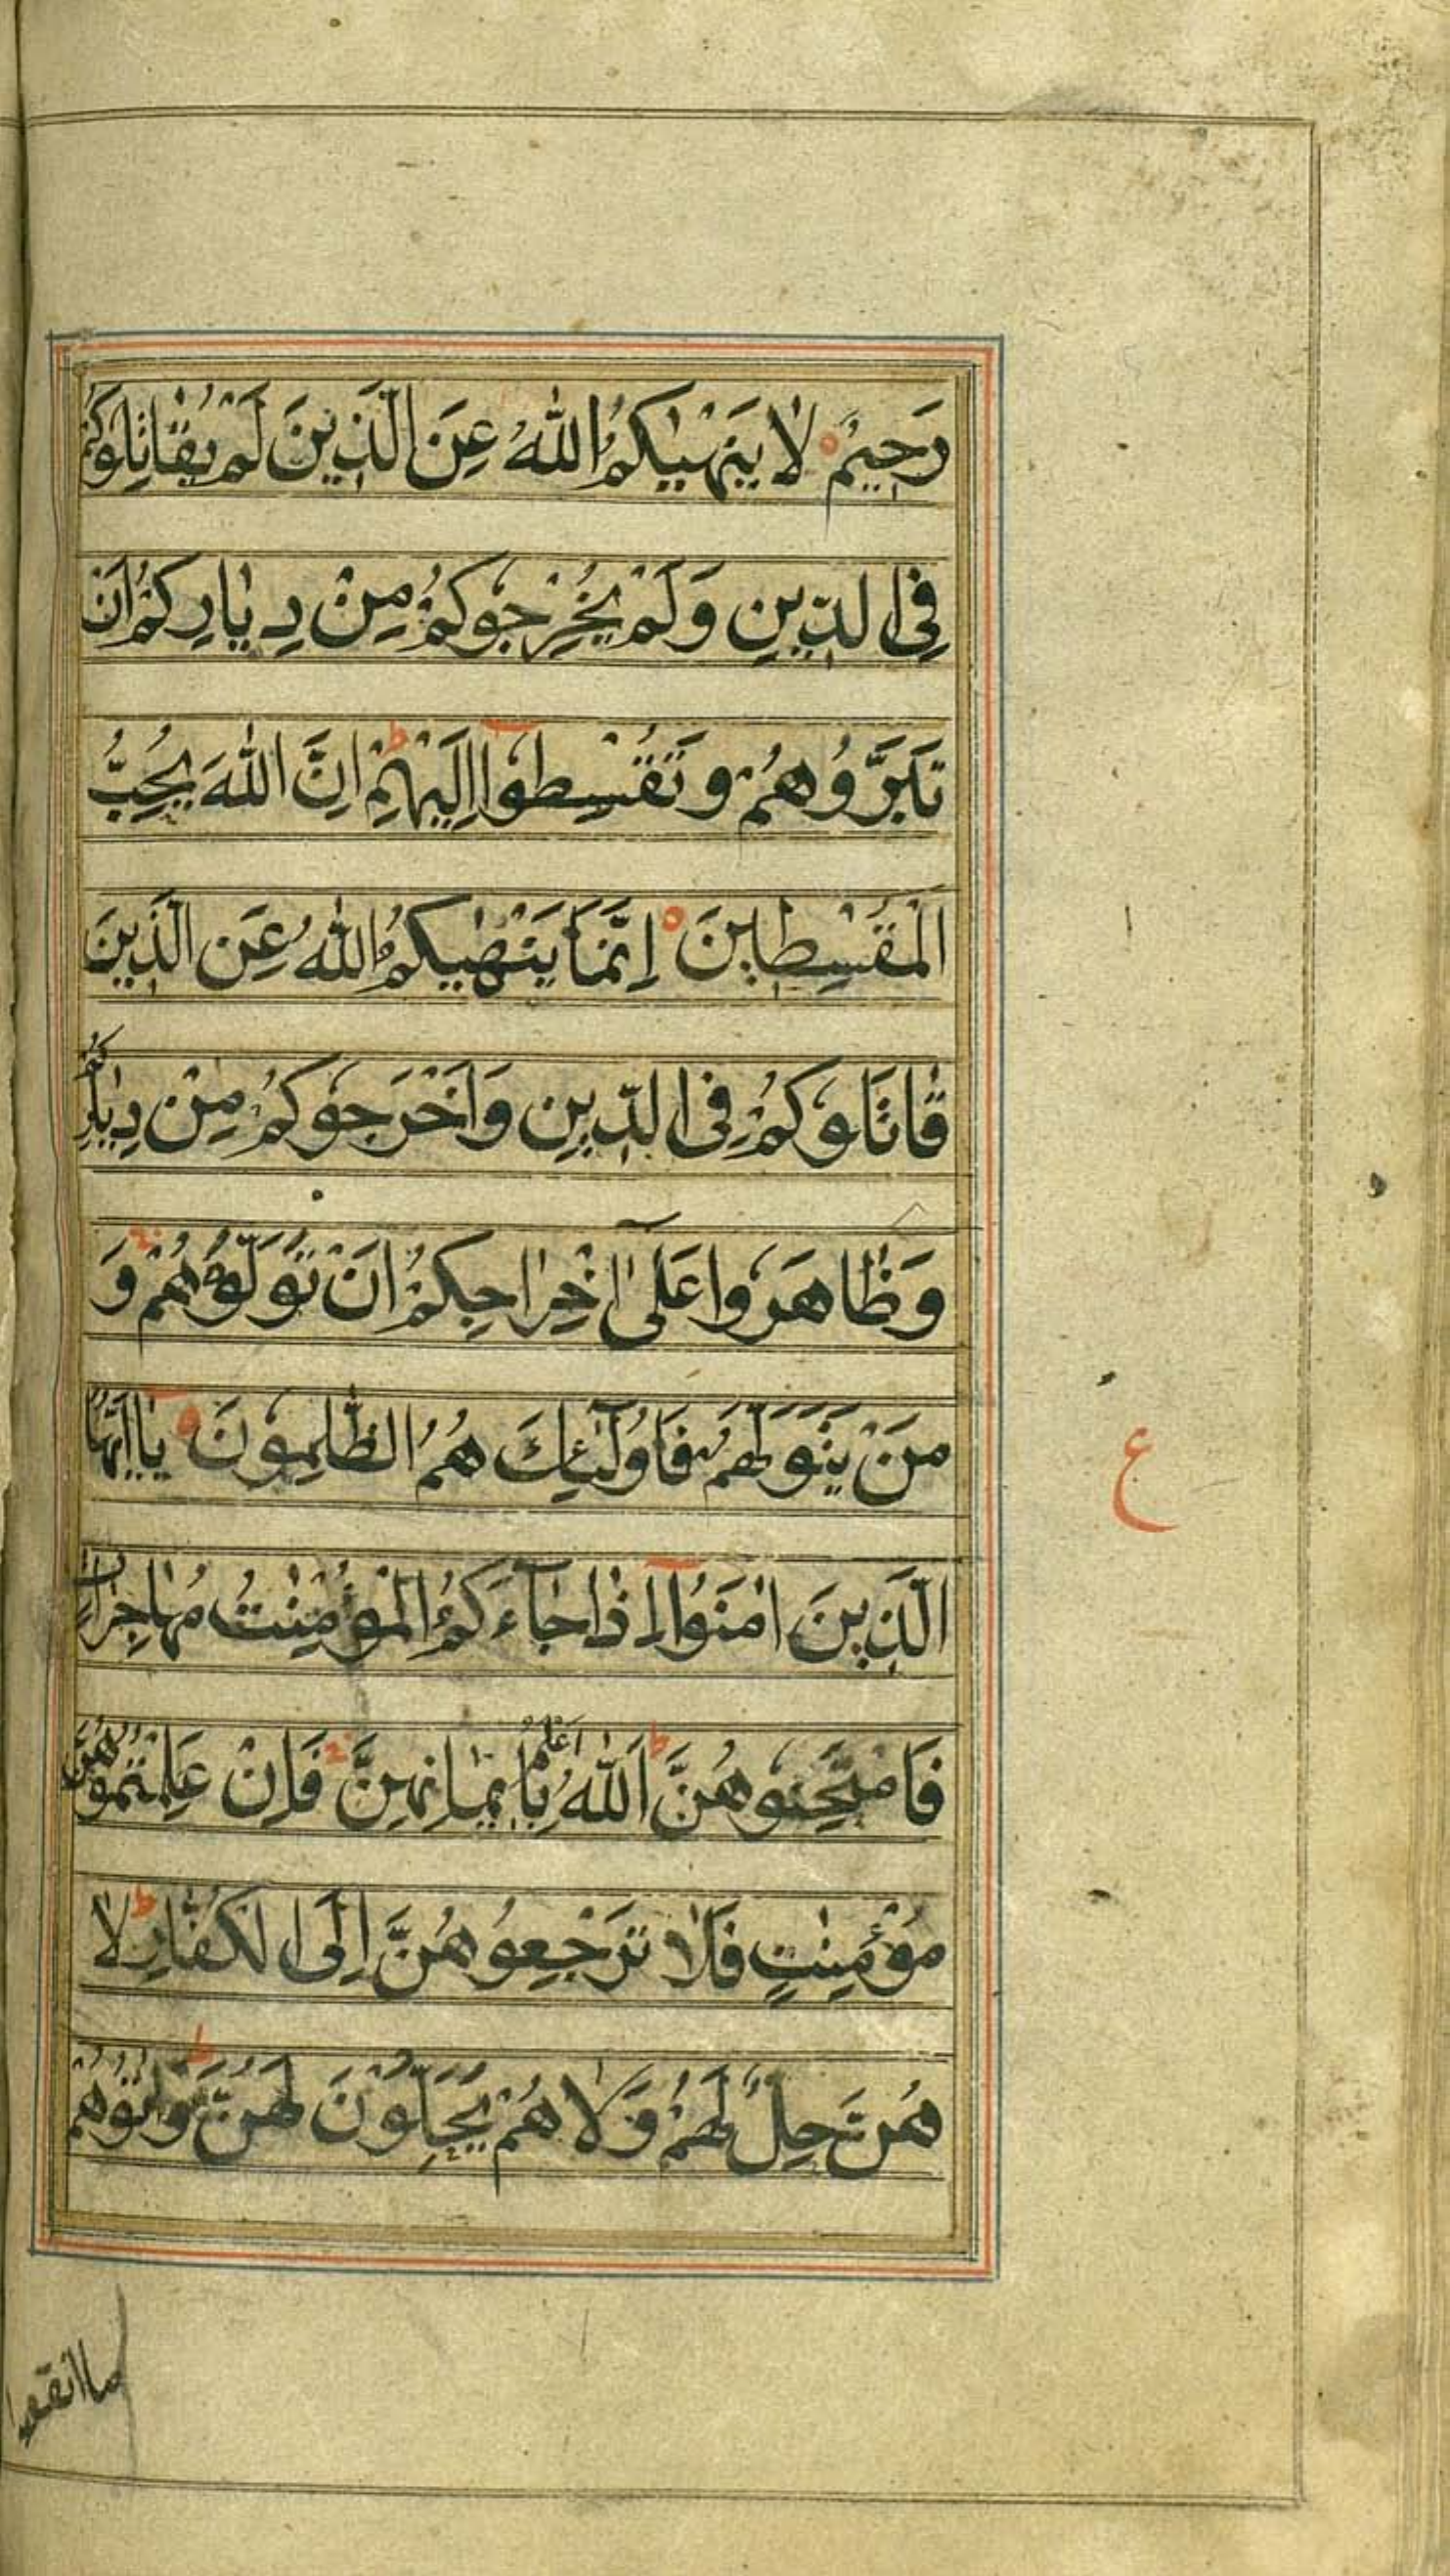 رَحِيمٌ ۝ لَا يَنْهٰىكُمُ اللّٰهُ عَنِ الَّذِينَ لَمْ يُقَاتِلُوكُمْ
فِي الدِّينِ وَلَمْ يُخْرِجُوكُمْ مِنْ دِيَارِكُمْ اَنْ
تَبَرُّوهُمْ وَتُقْسِطُوٓا اِلَيْهِمْ ط اِنَّ اللّٰهَ يُحِبُّ
الْمُقْسِطِينَ ۝ اِنَّمَا يَنْهٰىكُمُ اللّٰهُ عَنِ الَّذِينَ
قَاتَلُوكُمْ فِي الدِّينِ وَاَخْرَجُوكُمْ مِنْ دِيَارِكُمْ
وَظَاهَرُوا عَلٰٓى اِخْرَاجِكُمْ اَنْ تَوَلَّوْهُمْ ج وَ
مَنْ يَتَوَلَّهُمْ فَاُولٰٓئِكَ هُمُ الظّٰلِمُونَ ۝ يٰٓااَيُّهَا
ع
الَّذِينَ اٰمَنُوٓا اِذَا جَآءَكُمُ الْمُؤْمِنٰتُ مُهَاجِرَاتٍ
فَامْتَحِنُوهُنَّ ط اَللّٰهُ اَعْلَمُ بِاِيمَانِهِنَّ ج فَاِنْ عَلِمْتُمُوهُنَّ
مُؤْمِنٰتٍ فَلَا تَرْجِعُوهُنَّ اِلَى الْكُفَّارِ ط لَا
هُنَّ حِلٌّ لَهُمْ وَلَا هُمْ يَحِلُّونَ لَهُنَّ ط وَاٰتُوهُمْ
ما انفقوا